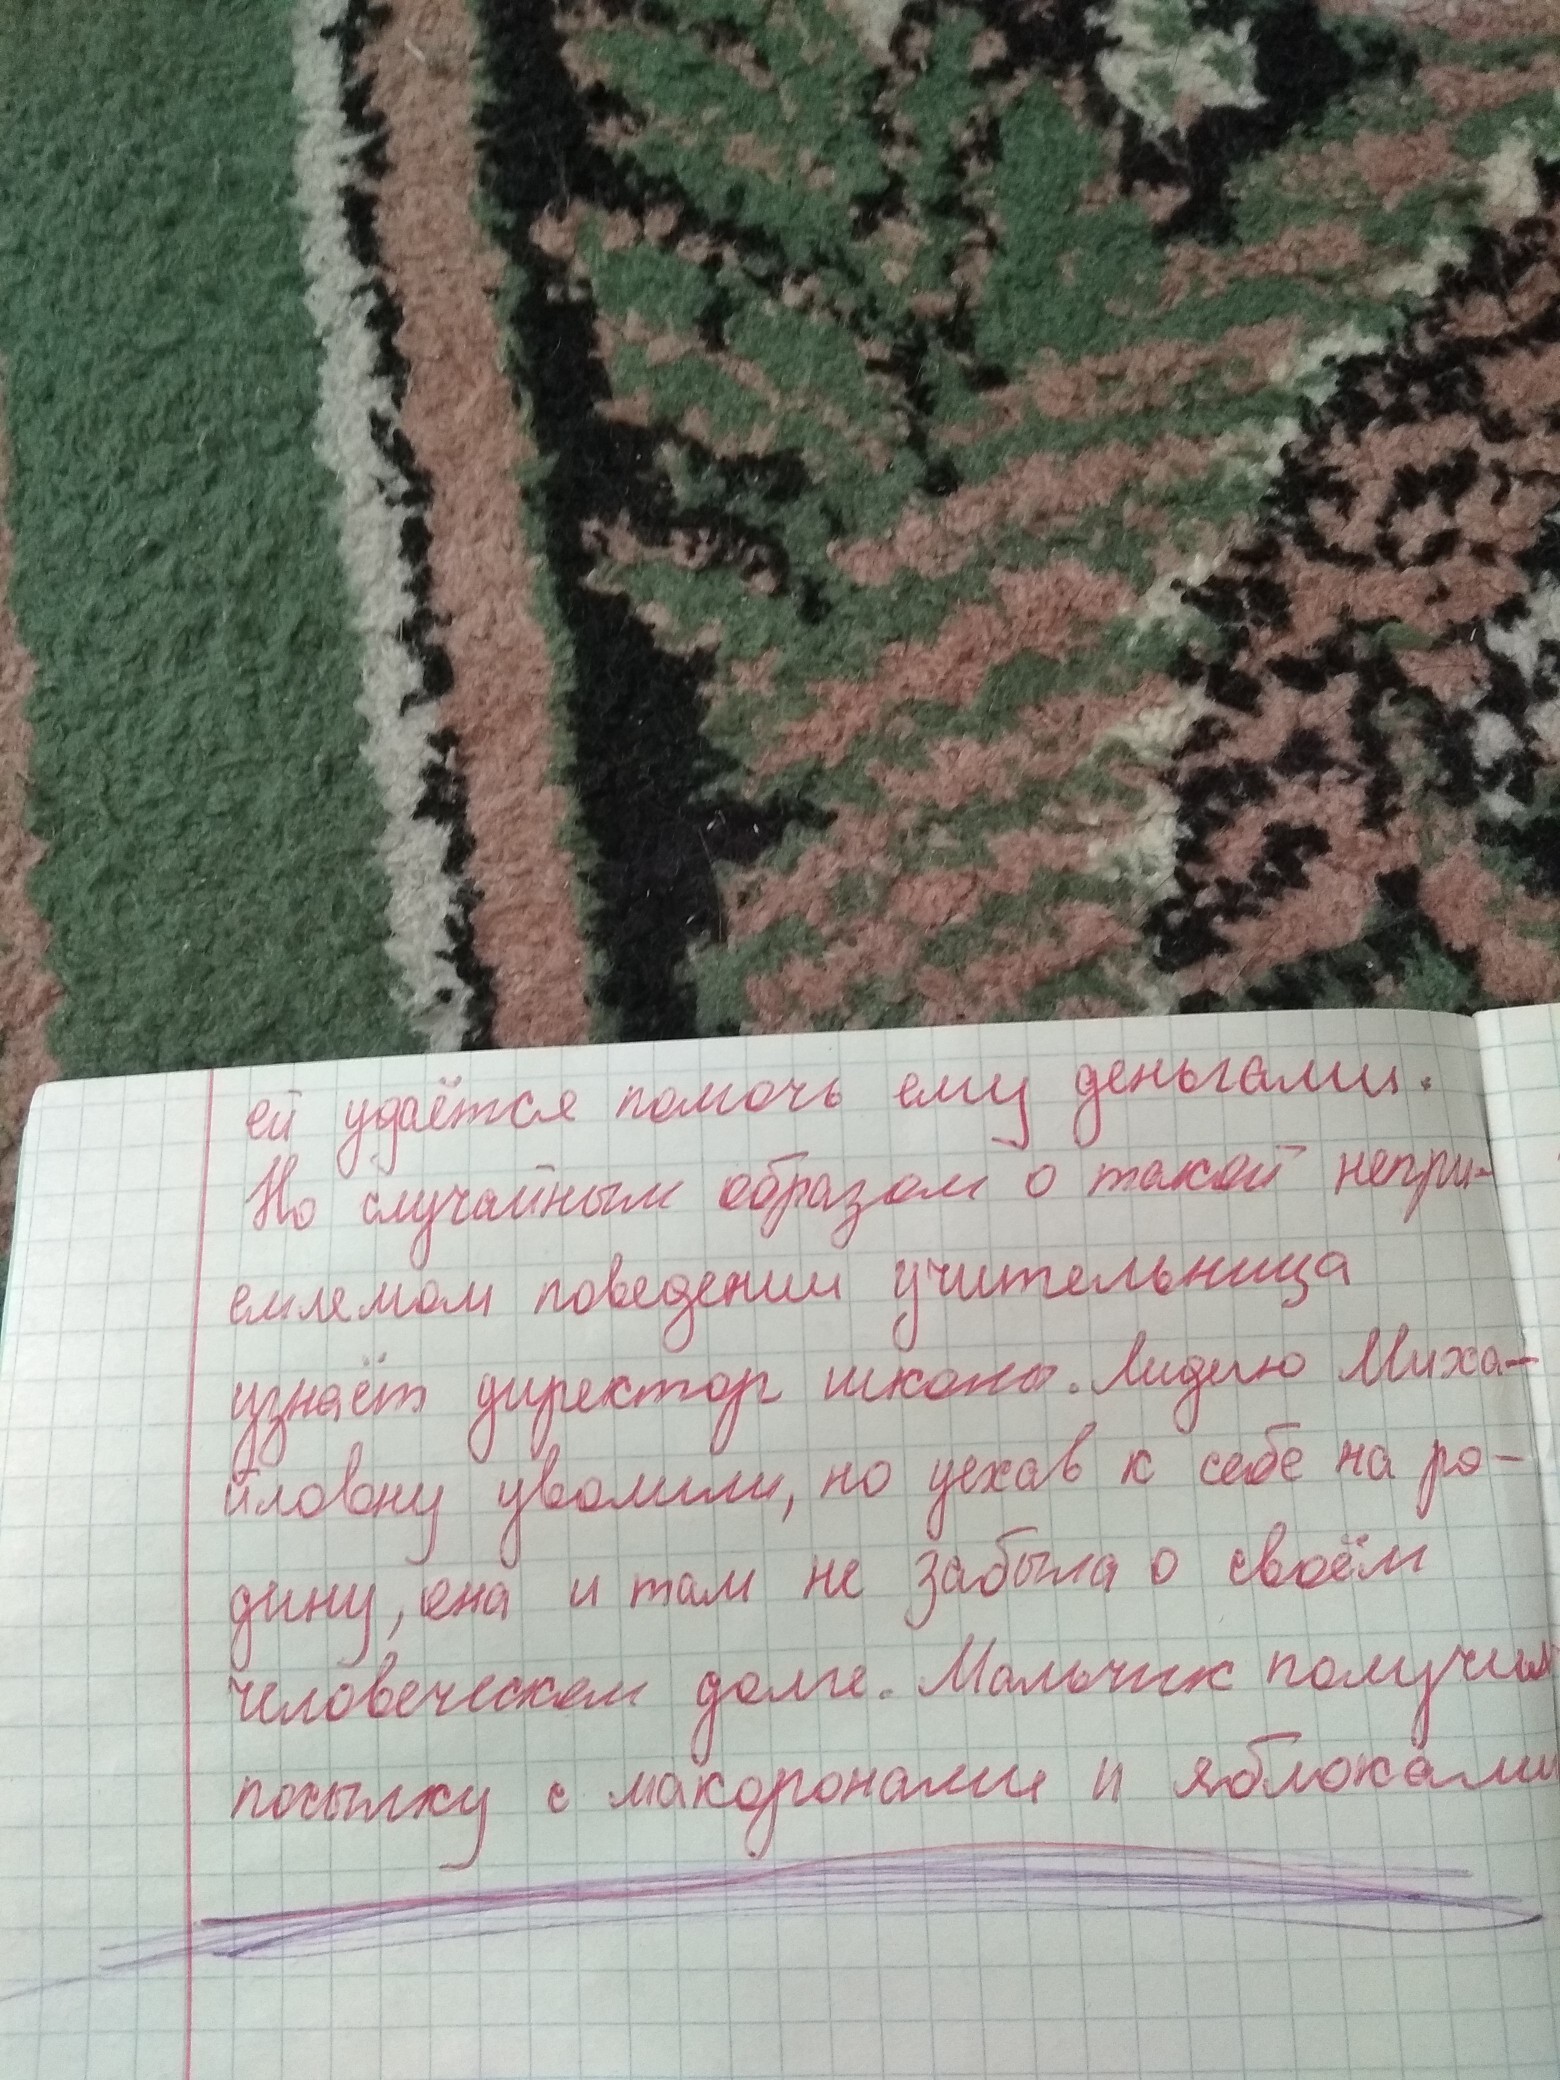 ей удаётся помочь ему деньгами.
Но случайным образом о такой непри-
емлемом поведении учительница
узнаёт директор школы. Лидию Миха-
йловну уволили, но уехав к себе на ро-
дину, она и там не забыла о своём
человеческом долге. Мальчик получил
посылку с макоронами и яблоками